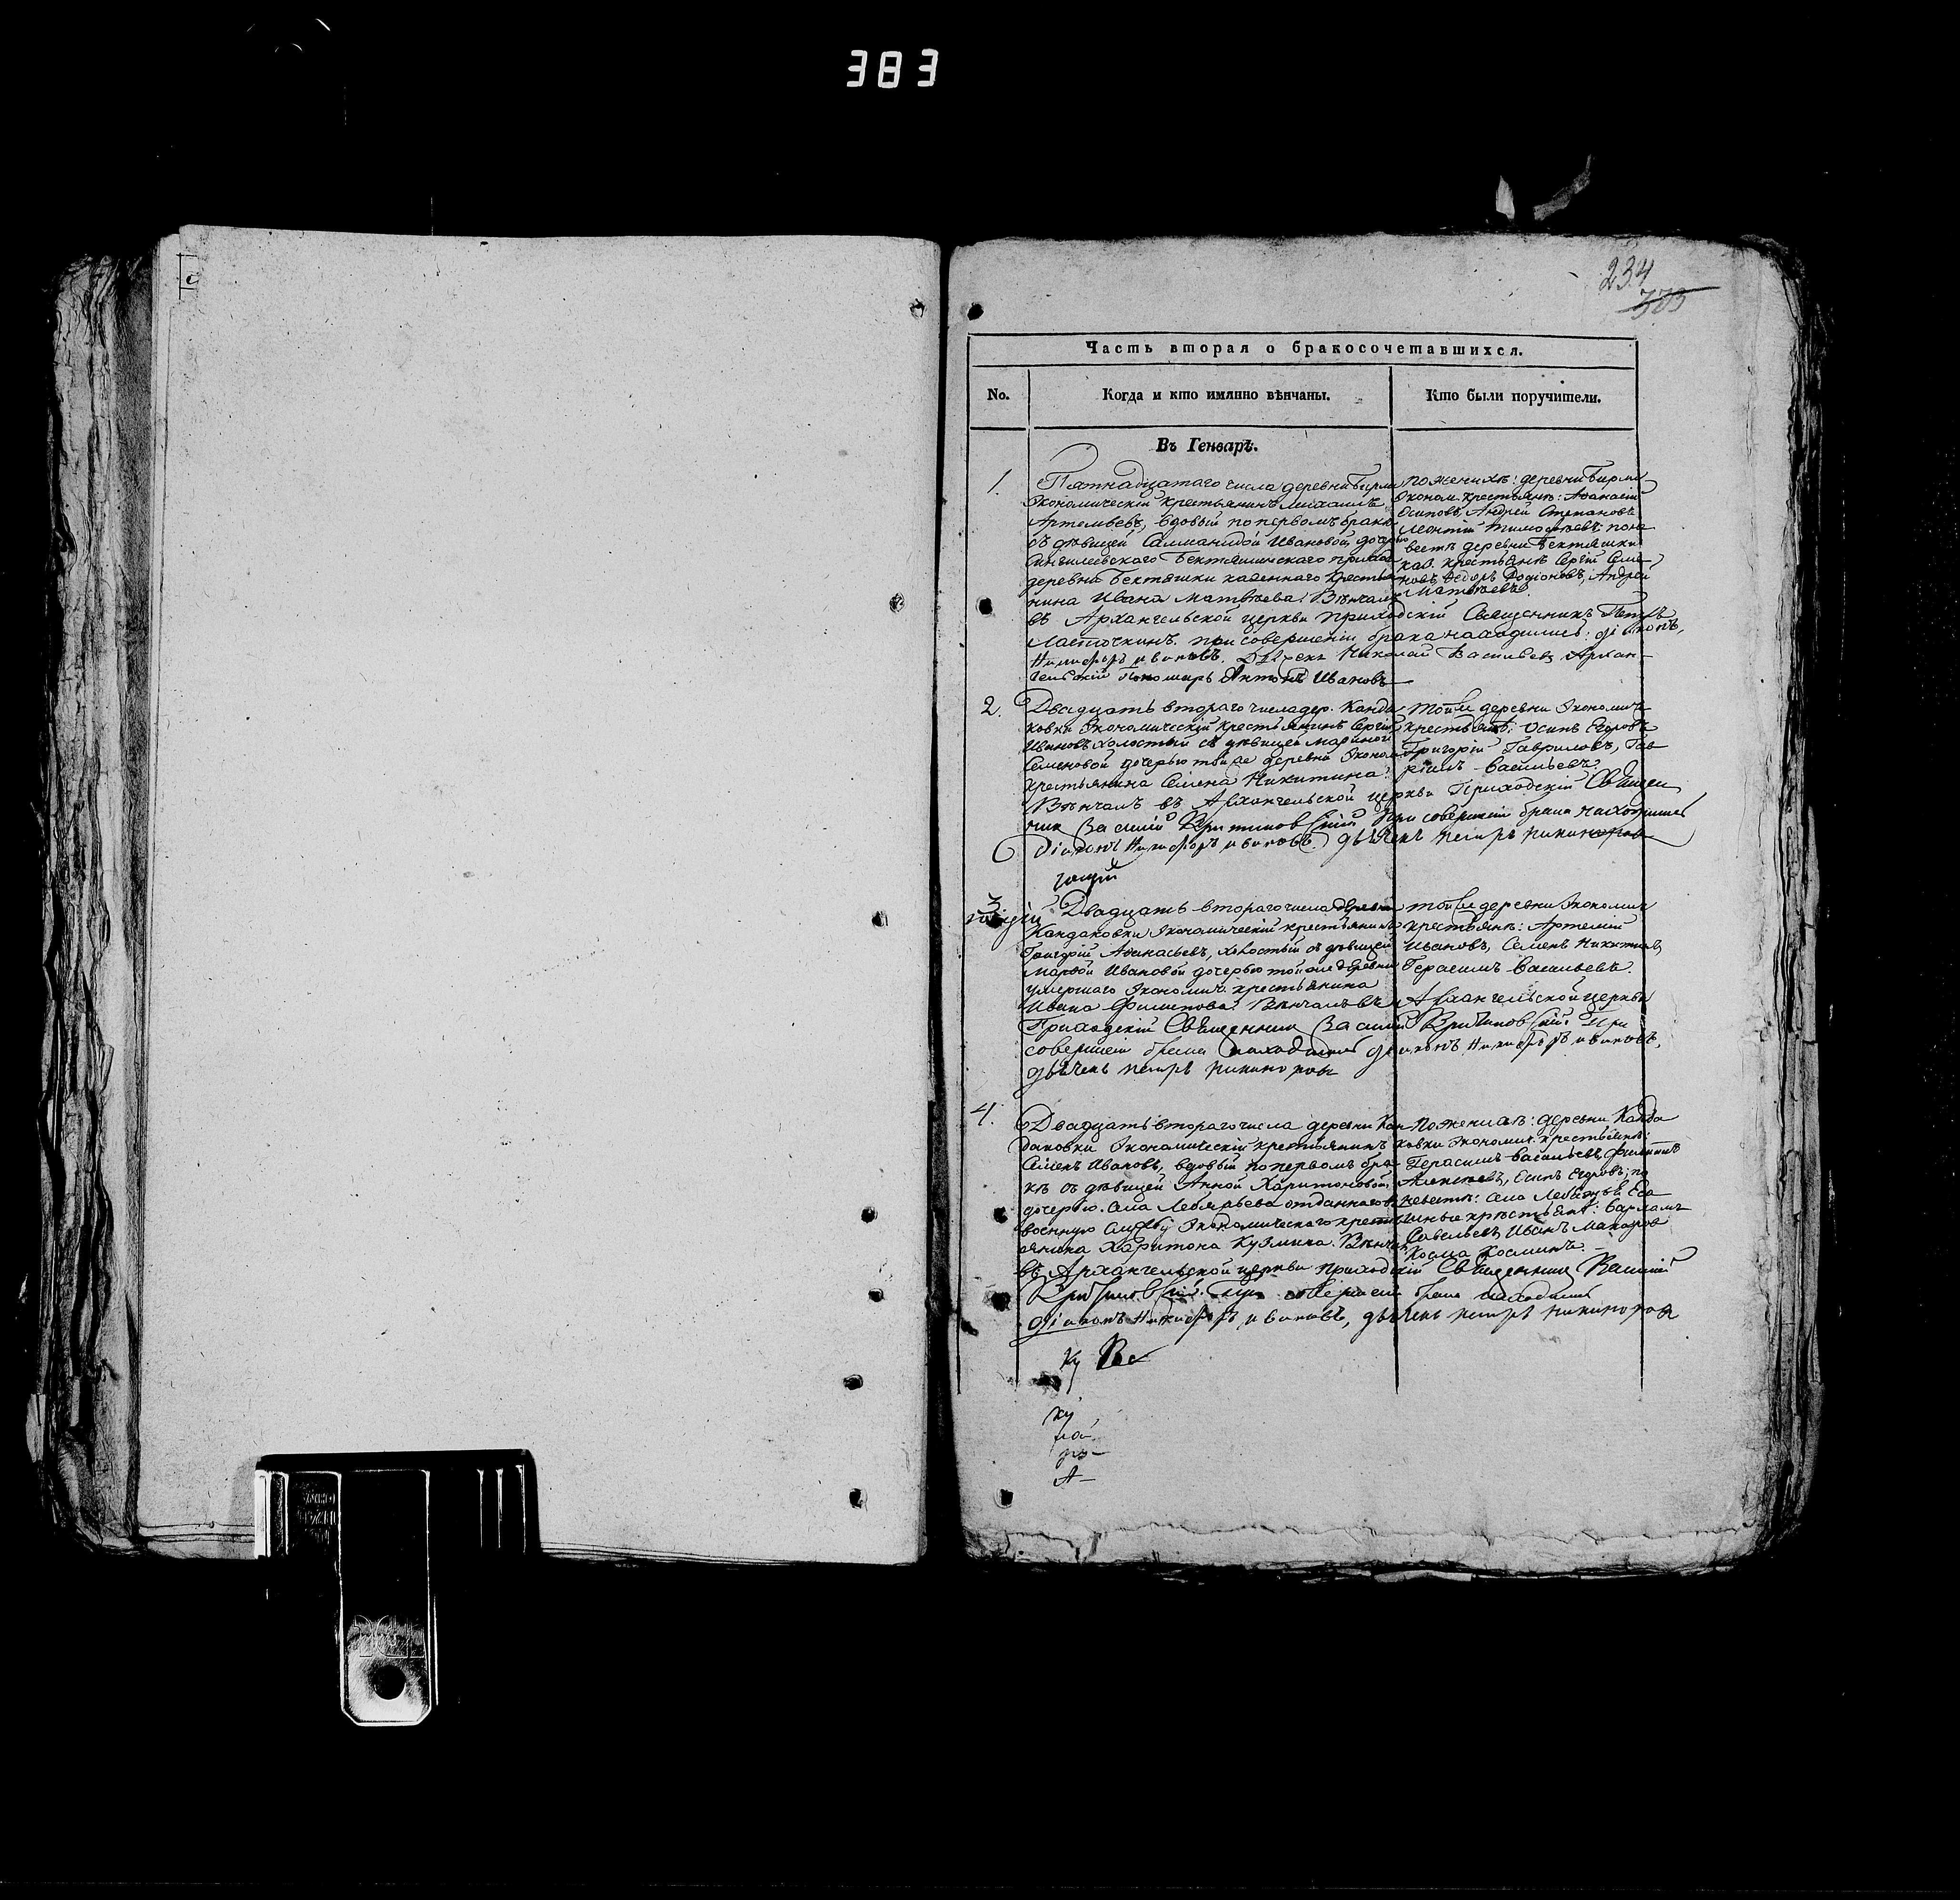 383
234
Часть вторая о бракосочетавшихся.
No.
Когда и кто имянно вѣнчаны.
Кто были поручители.
Въ Генварѣ.
1.
Пятнадцатаго числа деревни Бирли
Экономическій крестьянинъ Михаилъ
Артемьевъ, вдовый по первомъ бракѣ
съ дѣвицей Ивановой
Бектяшинскаго
деревни Бектяшки казеннаго крестья
нина Ивана Матвѣева. Вѣнчалъ
въ Архангельской церкви приходскій Священникъ Петръ
Ласточкинъ. при совершеніи брака находились: діаконъ,
Никифоръ Ивановъ. Дьячекъ Николай Васильевъ Архан-
гельскій Пономарь Антонъ Ивановъ
по женихѣ: деревни Бирли
Эконом. крестьянѣ: Аѳанасій
Осиповъ, Андрей Степановъ
Леонтій Тимоѳеевъ по не
вестѣ деревни Бектяшки
каз. крестьянѣ Сергій Семе
новъ, Ѳедоръ Родіоновъ, Андрей
Матвѣевъ.
2.
Двадцать втораго числа дер. Канда
ковки Экономическій крестьянинъ Сергій
Ивановъ холостый съ дѣвицей Мариной
Семеновой дочерью той же деревни Эконом
крестьянина Семена Никитина.
Вѣнчалъ въ Архангельской церкви Приходскій Священ
ник Василій При совершеніи брака находились
діаконъ Никифоръ Ивановъ. дьячекъ Петръ Никаноровъ
той же деревни Экономич
крестьянѣ: Осипъ Егоровъ
Григорій Гавриловъ, Гав
ріилъ Васильевъ.
3
Двадцать втораго числа деревни
Кандаковки Экономическій крестьянинъ
Григорій Аѳанасьевъ, холостый съ дѣвицей
Марѳой Ивановой дочерью той же деревни
умершаго Экономич. крестьянина
Ивана Филипова. Вѣнчалъ въ Архангельской церкви
Приходскій Священник Василій При
совершеніи брака находились діаконъ Никифоръ Ивановъ,
дьячекъ Петръ Никаноровъ
той же деревни Экономич
крестьянѣ: Артемій
Ивановъ, Семенъ Никитинъ,
Герасимъ Васильевъ.
4.
Двадцать втораго числа деревни Кан
даковки Экономическій крестьянинъ
Семенъ Ивановъ, вдовый по первомъ бра-
кѣ съ дѣвицей Анной Харитоновой
дочерью. села отданнаго въ
военную службу Экономическаго крестъ
янина Харитона Кузмина. Вѣнчалъ
въ Архангельской церкви приходскій Священник Василій
При совершеніи брака находились
діаконъ Никифоръ Ивановъ, дьячекъ Петръ Никаноров
По женихѣ: деревни Канда
ковки Экономич. крестьянѣ:
Герасимъ Васильевъ, Филиппъ
Алексѣевъ, Осипъ Егоровъ; по
невестѣ: села
крестьянѣ: Варламъ
Савельевъ Иванъ Макаров
Козма Козминъ.